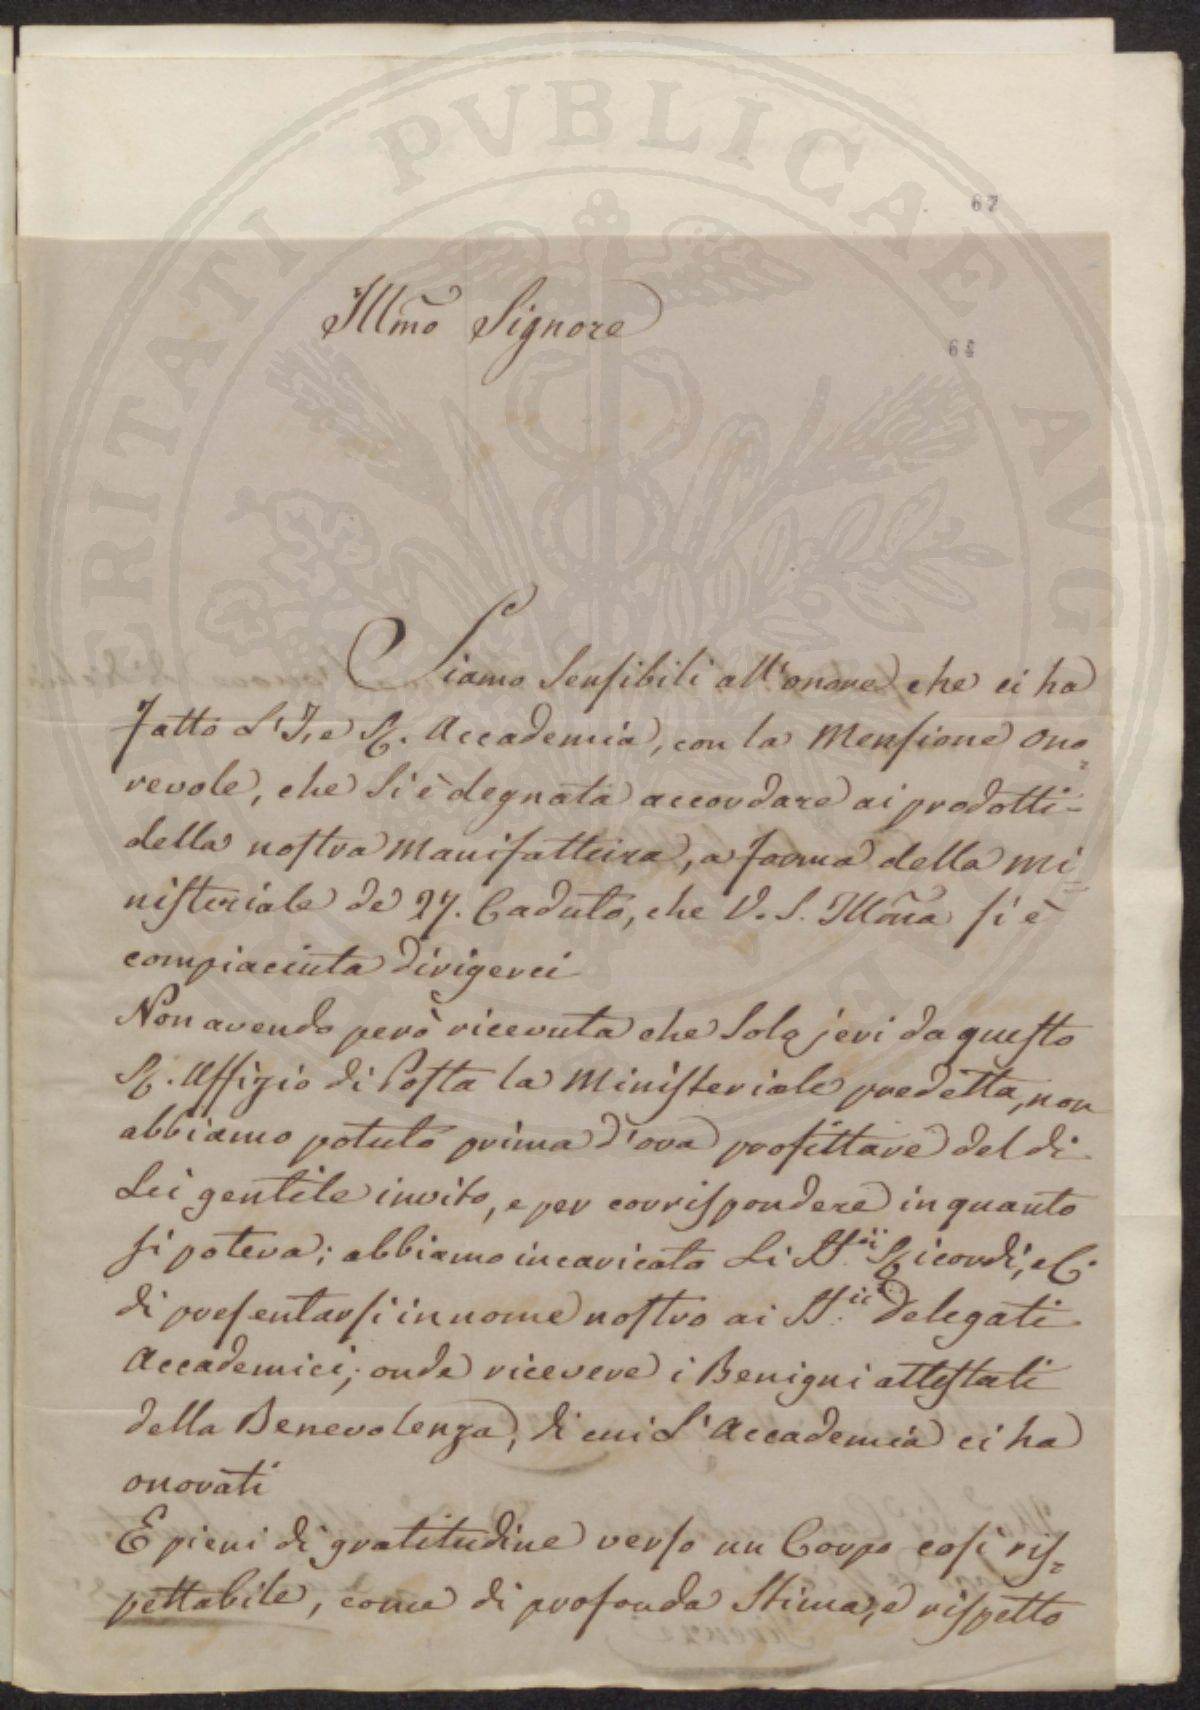 PVBLICAE
VERITATI
AVG
67
Illmo Signore
64
Siamo Sensibili all'onore che ci ha
fatto L'I. e R. Accademia, con la Mensione Ono=
revole, che Si è degnata accordare ai prodotti
della nostra Manifattura, a forma della Mi=
nisteriale de 27. Caduto, che V. S. Illma si è
compiaciuta dirigerci
Non avendo però ricevuta che Solo jeri da questo
R. Uffizio di Posta la Ministeriale predetta, non
abbiamo potuto prima d'ora profittare del di
Lei gentile invito, e per corrispondere in quanto
si poteva; abbiamo incaricato Li SS.ri Ricordi, e C.
di presentarsi in nome nostro ai SS.ri Delegati
Accademici; onde ricevere i Benigni attestati
della Benevolenza, di cui L'Accademia ci ha
onorati
E pieni di gratitudine verso un Corpo così ris=
pettabile, come di profonda Stima, e rispetto